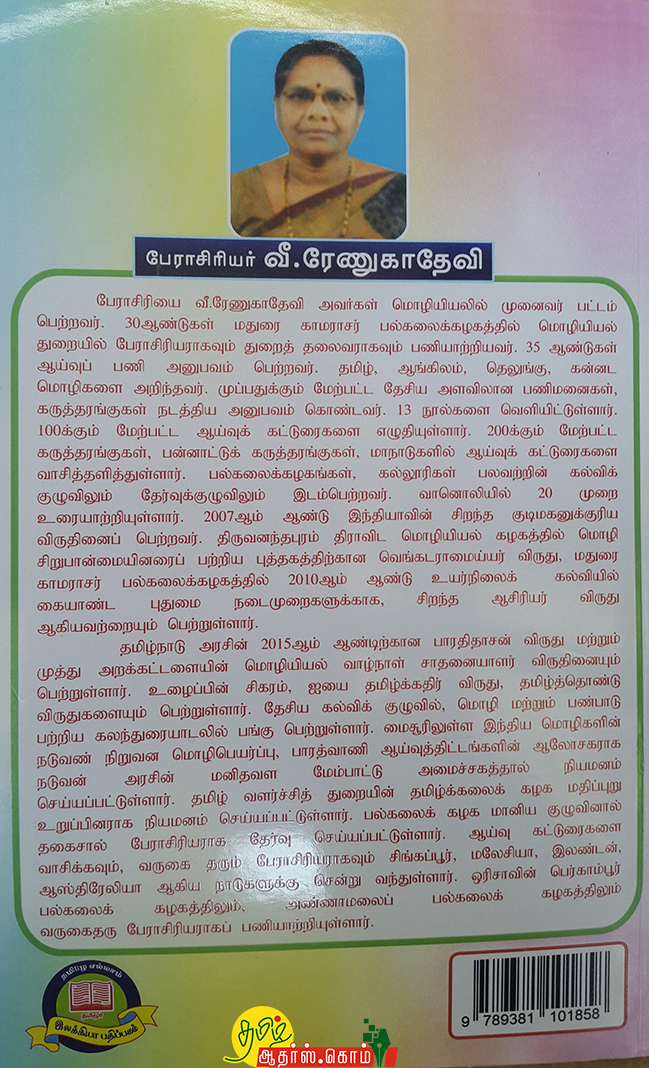 பேராசிரியர் வீ.ரேணுகாதேவி
பேராசிரியை வீ.ரேணுகாதேவி அவர்கள் மொழியியலில் முனைவர் பட்டம்
பெற்றவர். 30ஆண்டுகள் மதுரை காமராசர் பல்கலைக்கழகத்தில் மொழியியல்
துறையில் பேராசிரியராகவும் துறைத் தலைவராகவும் பணியாற்றியவர். 35 ஆண்டுகள்
ஆய்வுப் பணி அனுபவம் பெற்றவர். தமிழ், ஆங்கிலம், தெலுங்கு, கன்னட
மொழிகளை அறிந்தவர். முப்பதுக்கும் மேற்பட்ட தேசிய அளவிலான பணிமனைகள்,
கருத்தரங்குகள் நடத்திய அனுபவம் கொண்டவர். 13 நூல்களை வெளியிட்டுள்ளார்.
100க்கும் மேற்பட்ட ஆய்வுக் கட்டுரைகளை எழுதியுள்ளார். 200க்கும் மேற்பட்ட
கருத்தரங்குகள், பன்னாட்டுக் கருத்தரங்குகள், மாநாடுகளில் ஆய்வுக் கட்டுரைகளை
வாசித்தளித்துள்ளார். பல்கலைக்கழகங்கள், கல்லூரிகள் பலவற்றின் கல்விக்
குழுவிலும் தேர்வுக்குழுவிலும் இடம்பெற்றவர். வானொலியில் 20 முறை
உரையாற்றியுள்ளார். 2007ஆம் ஆண்டு இந்தியாவின் சிறந்த குடிமகனுக்குரிய
விருதினைப் பெற்றவர். திருவனந்தபுரம் திராவிட மொழியியல் கழகத்தில் மொழி
சிறுபான்மையினரைப் பற்றிய புத்தகத்திற்கான வெங்கடராமைய்யர் விருது, மதுரை
காமராசர் பல்கலைக்கழகத்தில் 2010ஆம் ஆண்டு உயர்நிலைக் கல்வியில்
கையாண்ட புதுமை நடைமுறைகளுக்காக, சிறந்த ஆசிரியர் விருது
ஆகியவற்றையும் பெற்றுள்ளார்.
தமிழ்நாடு அரசின் 2015ஆம் ஆண்டிற்கான பாரதிதாசன் விருது மற்றும்
முத்து அறக்கட்டளையின் மொழியியல் வாழ்நாள் சாதனையாளர் விருதினையும்
பெற்றுள்ளார். உழைப்பின் சிகரம், ஐயை தமிழ்க்கதிர் விருது, தமிழ்த்தொண்டு
விருதுகளையும் பெற்றுள்ளார். தேசிய கல்விக் குழுவில், மொழி மற்றும் பண்பாடு
பற்றிய கலந்துரையாடலில் பங்கு பெற்றுள்ளார். மைசூரிலுள்ள இந்திய மொழிகளின்
நடுவண் நிறுவன மொழிபெயர்ப்பு, பாரத்வாணி ஆய்வுத்திட்டங்களின் ஆலோசகராக
நடுவன் அரசின் மனிதவள மேம்பாட்டு அமைச்சகத்தால் நியமனம்
செய்யப்பட்டுள்ளார். தமிழ் வளர்ச்சித் துறையின் தமிழ்க்கலைக் கழக மதிப்புறு
உறுப்பினராக நியமனம் செய்யப்பட்டுள்ளார். பல்கலைக் கழக மானிய குழுவினால்
தகைசால் பேராசிரியராக தேர்வு செய்யப்பட்டுள்ளார். ஆய்வு கட்டுரைகளை
வாசிக்கவும், வருகை தரும் பேராசிரியராகவும் சிங்கப்பூர், மலேசியா, இலண்டன்,
ஆஸ்திரேலியா ஆகிய நாடுகளுக்கு சென்று வந்துள்ளார். ஒரிசாவின் பெர்காம்பூர்
பல்கலைக் கழகத்திலும், அண்ணாமலைப் பல்கலைக் கழகத்திலும்
வருகைதரு பேராசிரியராகப் பணியாற்றியுள்ளார்.
இலக்கியா பதிப்பகம்
9 789381 101858
தமிழ்
ஆதர்ஸ்.கொம்